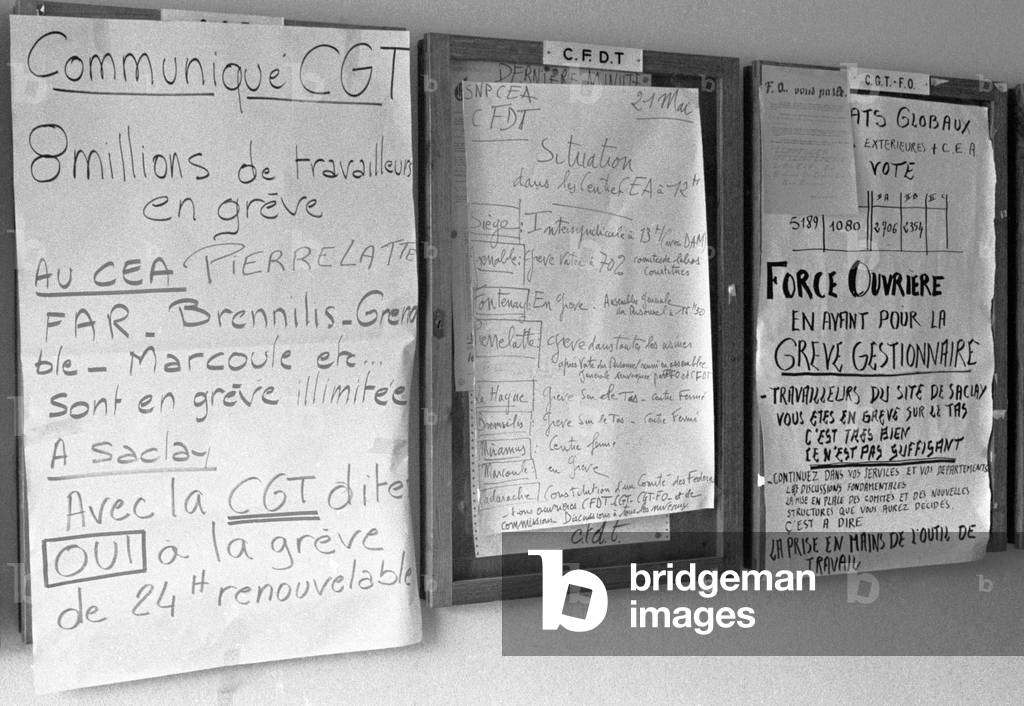 Communiqué CGT
8 millions de travailleurs
en grève
Au CEA PIERRELATTE
FAR_ Brennilis_Greno
ble_ Marcoule etc...
sont en grève illimitée
A saclay
Avec la CGT dite
OUI à la grève
de 24H renouvelable
C.F.D.T
DERNIERE MINUTE
SNPCEA
CFDT
21 Mai
Situation
dans les Centres CEA à 12H
Siège: Intersyndicale à 13H / avec DAM
enoble: Grève Votée à 702 comités de
constitués
Fontenay: En grève. Assemblée Générale
du Personnel à
Pierrelatte grève dans toutes les usines
après Vote du Personnel réuni en assemblée
générale par FO et CFDT
La Hague: Grève Sur le Tas - Centre Fermé
Brennilis: Grève sur le Tas - Centre Fermé
Miramas: Centre fermé
Marcoule: en Grève
Cadarache / Constitution d'un Comité des Federa
tions ouvrières CFDT.CGT.CGT-FO et de
commission Discussions à tous les niveaux
c.f.d.t.
C.G.T.-F.O.
F.O. vous parle.
ATS GLOBAUX
EXTERIEURES + C.E.A
VOTE
5189 1080 2706 2354
FORCE OUVRIÈRE
EN AVANT POUR LA
GRÈVE GESTIONNAIRE
- TRAVAILLEURS DU SITE DE SACLAY
VOUS ETES EN GREVE SUR LE TAS
C'EST TRES BIEN
CE N'EST PAS SUFFISANT
CONTINUEZ DANS VOS SERVICES ET VOS DEPARTEMENTS
LES DISCUSSIONS FONDAMENTALES
LA MISE EN PLACE DES COMITÉS ET DES NOUVELLES
STRUCTURES QUE VOUS AUREZ DÉCIDÉS
C'EST A DIRE
LA PRISE EN MAINS DE L'OUTIL DE
TRAVAIL
b bridgeman
images